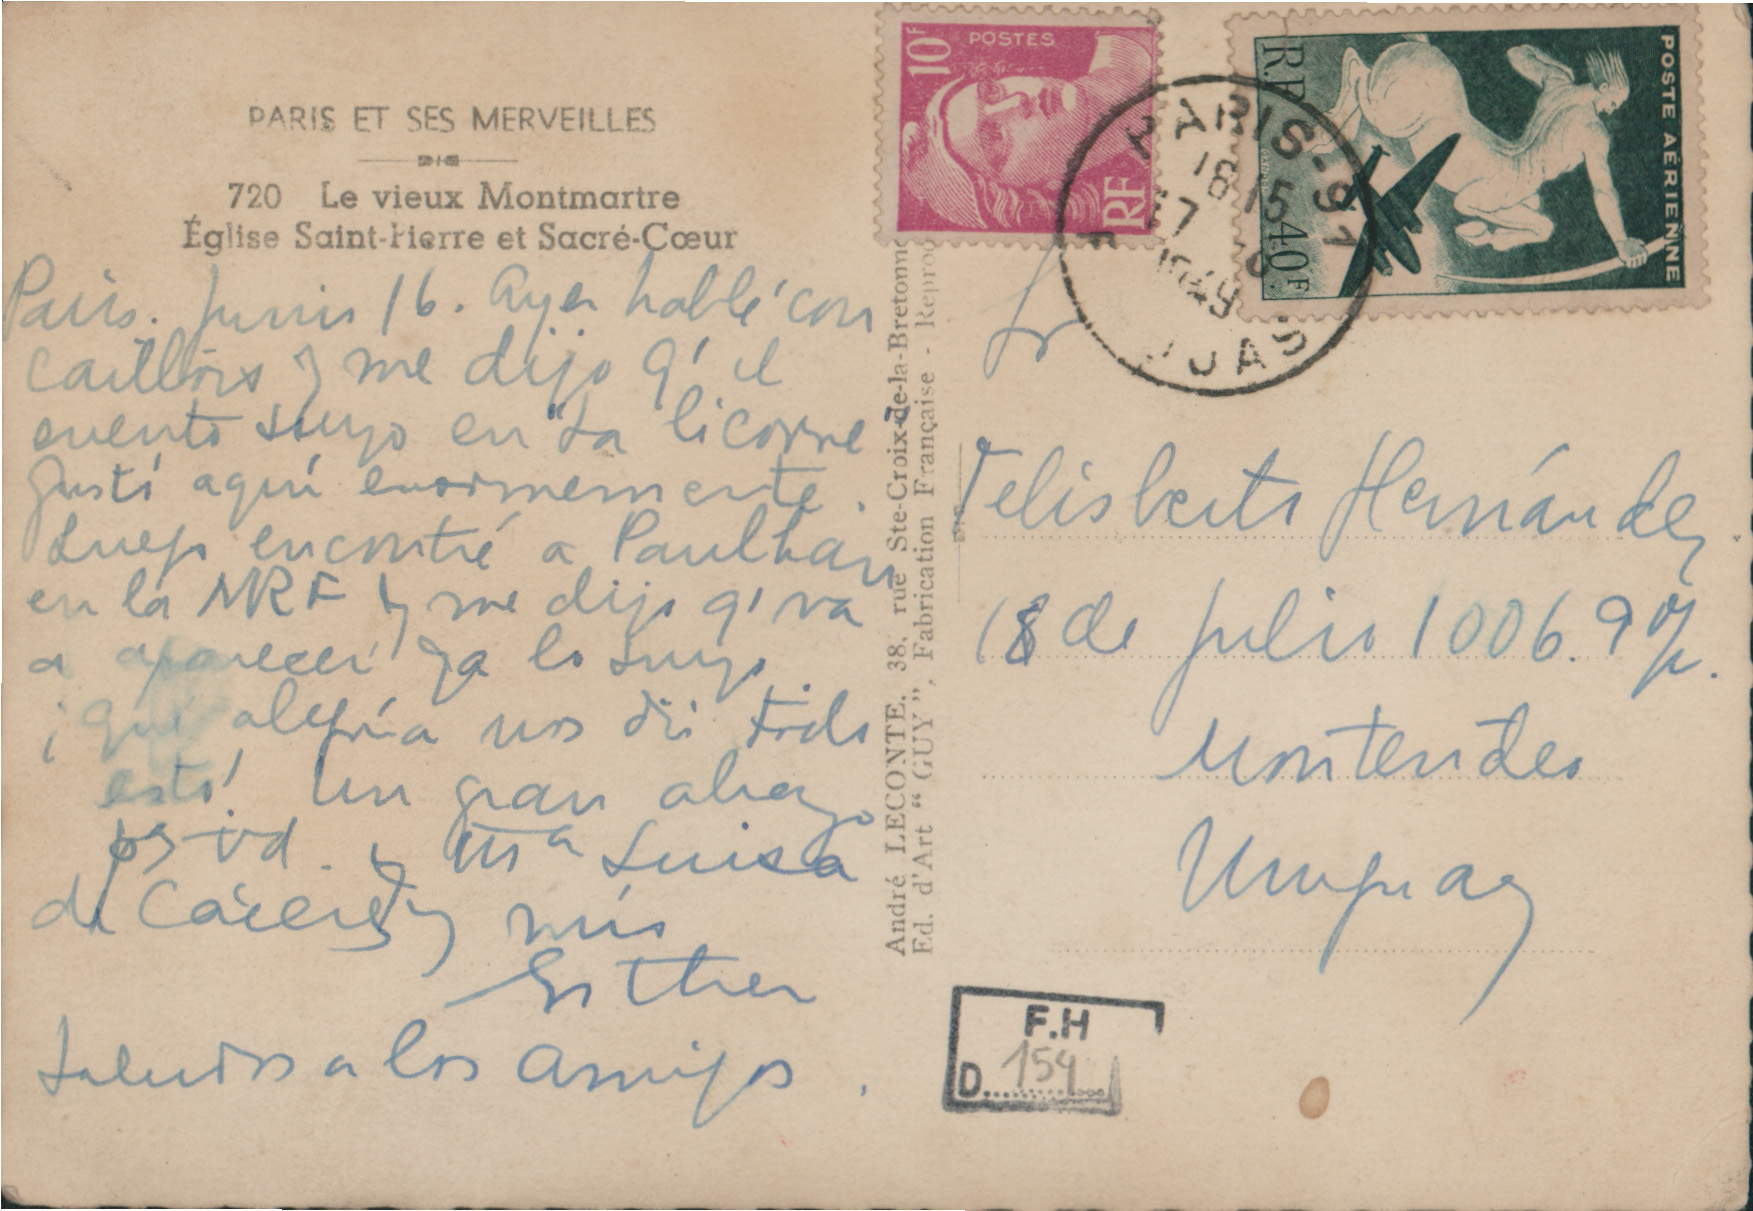 PARIS ET SES MERVEILLES
720 Le vieux Montmartre
Église Saint-Pierre et Sacré-Cœur
París. Junio 16. Ayer hablé con
Caillois y me dijo q' el
cuento suyo en "La Licorne
gustó aquí enormemente.
Luego encontré a Paulhan
en la NRF y me dijo q' va
a aparecer ya lo suyo.
¡qué alegría nos dió todo
esto! Un gran abrazo
pª vd. y Mª Luisa
de Cáceres y mis
Esther
Saludos a los amigos.
André LECONTE, 38, rue Ste-Croix-de-la-Bretonne
Ed. d'Art "GUY", Fabrication Française - Reprod
POSTES
10F
RF
POSTE AÉRIENNE
RF
40F
PARIS-
18 15
1949
Sr
Felisberto Hernández
18 de Julio 1006. 9º p.
Montevideo
Uruguay
F.H
D. 154